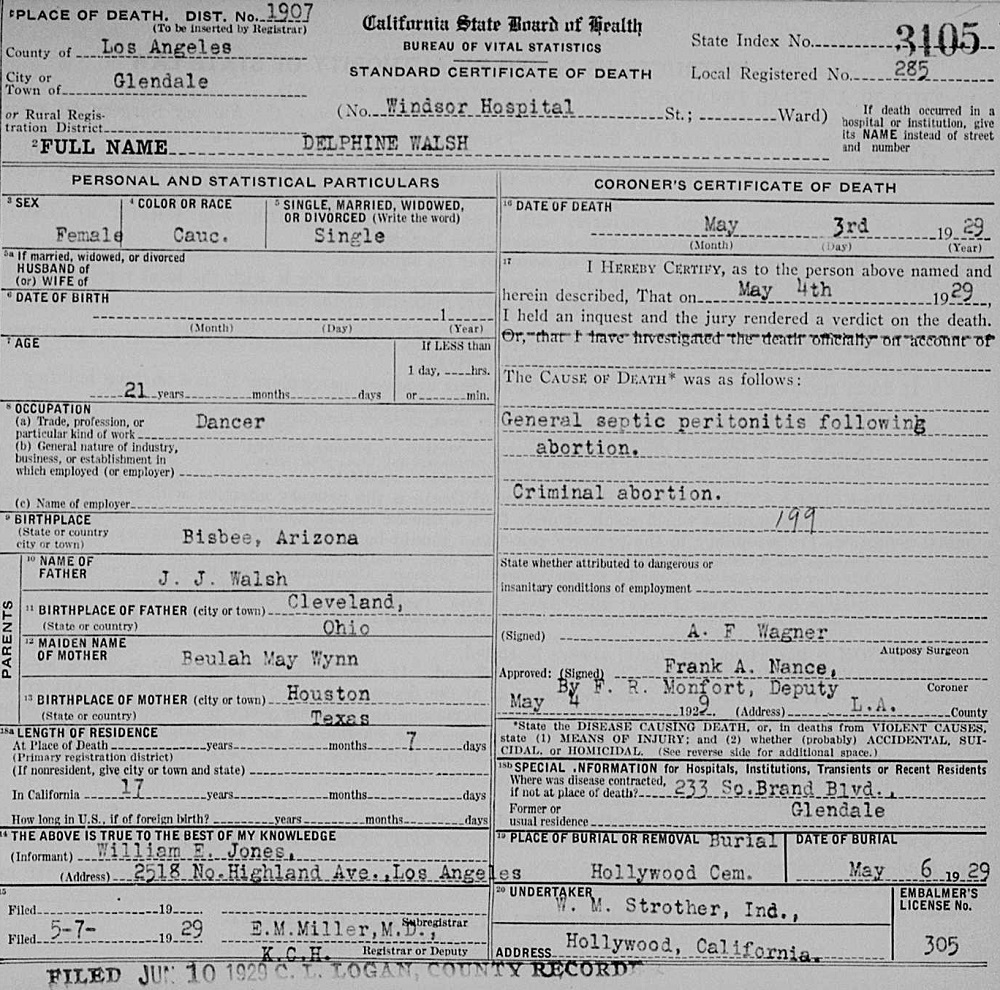 ¹PLACE OF DEATH. DIST. No. 1907
(To be inserted by Registrar)
County of Los Angeles
City or
Town of Glendale
or Rural Regis-
tration District
California State Board of Health
BUREAU OF VITAL STATISTICS
STANDARD CERTIFICATE OF DEATH
(No. Windsor Hospital St.; Ward)
State Index No. 3105
Local Registered No. 285
If death occurred in a
hospital or institution, give
its NAME instead of street
and number
²FULL NAME DELPHINE WALSH
PERSONAL AND STATISTICAL PARTICULARS
³ SEX
Female
⁴ COLOR OR RACE
Cauc.
⁵ SINGLE, MARRIED, WIDOWED,
OR DIVORCED (Write the word)
Single
5a If married, widowed, or divorced
HUSBAND of
(or) WIFE of
⁶ DATE OF BIRTH
1
(Month) (Day) (Year)
⁷ AGE
21 years months days
If LESS than
1 day, hrs.
or min.
⁸ OCCUPATION
(a) Trade, profession, or
particular kind of work Dancer
(b) General nature of industry,
business, or establishment in
which employed (or employer)
(c) Name of employer
⁹ BIRTHPLACE
(State or country
city or town) Bisbee, Arizona
PARENTS
¹⁰ NAME OF
FATHER J. J. Walsh
¹¹ BIRTHPLACE OF FATHER (city or town) Cleveland,
(State or country) Ohio
¹² MAIDEN NAME
OF MOTHER Beulah May Wynn
¹³ BIRTHPLACE OF MOTHER (city or town) Houston
(State or country) Texas
18a LENGTH OF RESIDENCE
At Place of Death years months 7 days
(Primary registration district)
(If nonresident, give city or town and state)
In California 17 years months days
How long in U.S., if of foreign birth? years months days
14 THE ABOVE IS TRUE TO THE BEST OF MY KNOWLEDGE
(Informant) William E. Jones,
(Address) 2518 No.Highland Ave.,Los Angeles
15
Filed 19
Subregistrar
Filed 5-7- 19 29 E.M.Miller,M.D.,
K.C.H. Registrar or Deputy
CORONER'S CERTIFICATE OF DEATH
¹⁶ DATE OF DEATH
May 3rd 19 29
(Month) (Day) (Year)
17 I HEREBY CERTIFY, as to the person above named and
herein described, That on May 4th 1929,
I held an inquest and the jury rendered a verdict on the death.
Or, that I have investigated the death officially on account of
The CAUSE OF DEATH* was as follows:
General septic peritonitis following
abortion.
Criminal abortion.
199
State whether attributed to dangerous or
insanitary conditions of employment
(Signed) A. F Wagner
Autposy Surgeon
Approved: (Signed) Frank A. Nance,
By F. R. Monfort, Deputy Coroner
May 4 1929 (Address) L.A. County
*State the DISEASE CAUSING DEATH, or, in deaths from VIOLENT CAUSES,
state (1) MEANS OF INJURY; and (2) whether (probably) ACCIDENTAL, SUI-
CIDAL, or HOMICIDAL. (See reverse side for additional space.)
18b SPECIAL .NFORMATION for Hospitals, Institutions, Transients or Recent Residents
Where was disease contracted,
if not at place of death? 233 So.Brand Blvd.,
Former or
usual residence Glendale
¹⁹ PLACE OF BURIAL OR REMOVAL Burial
Hollywood Cem.
DATE OF BURIAL
May 6 19 29
²⁰ UNDERTAKER
W. M. Strother, Ind.,
ADDRESS Hollywood, California.
EMBALMER'S
LICENSE No.
305
FILED JUN 10 1929 C. L. LOGAN, COUNTY RECORDER